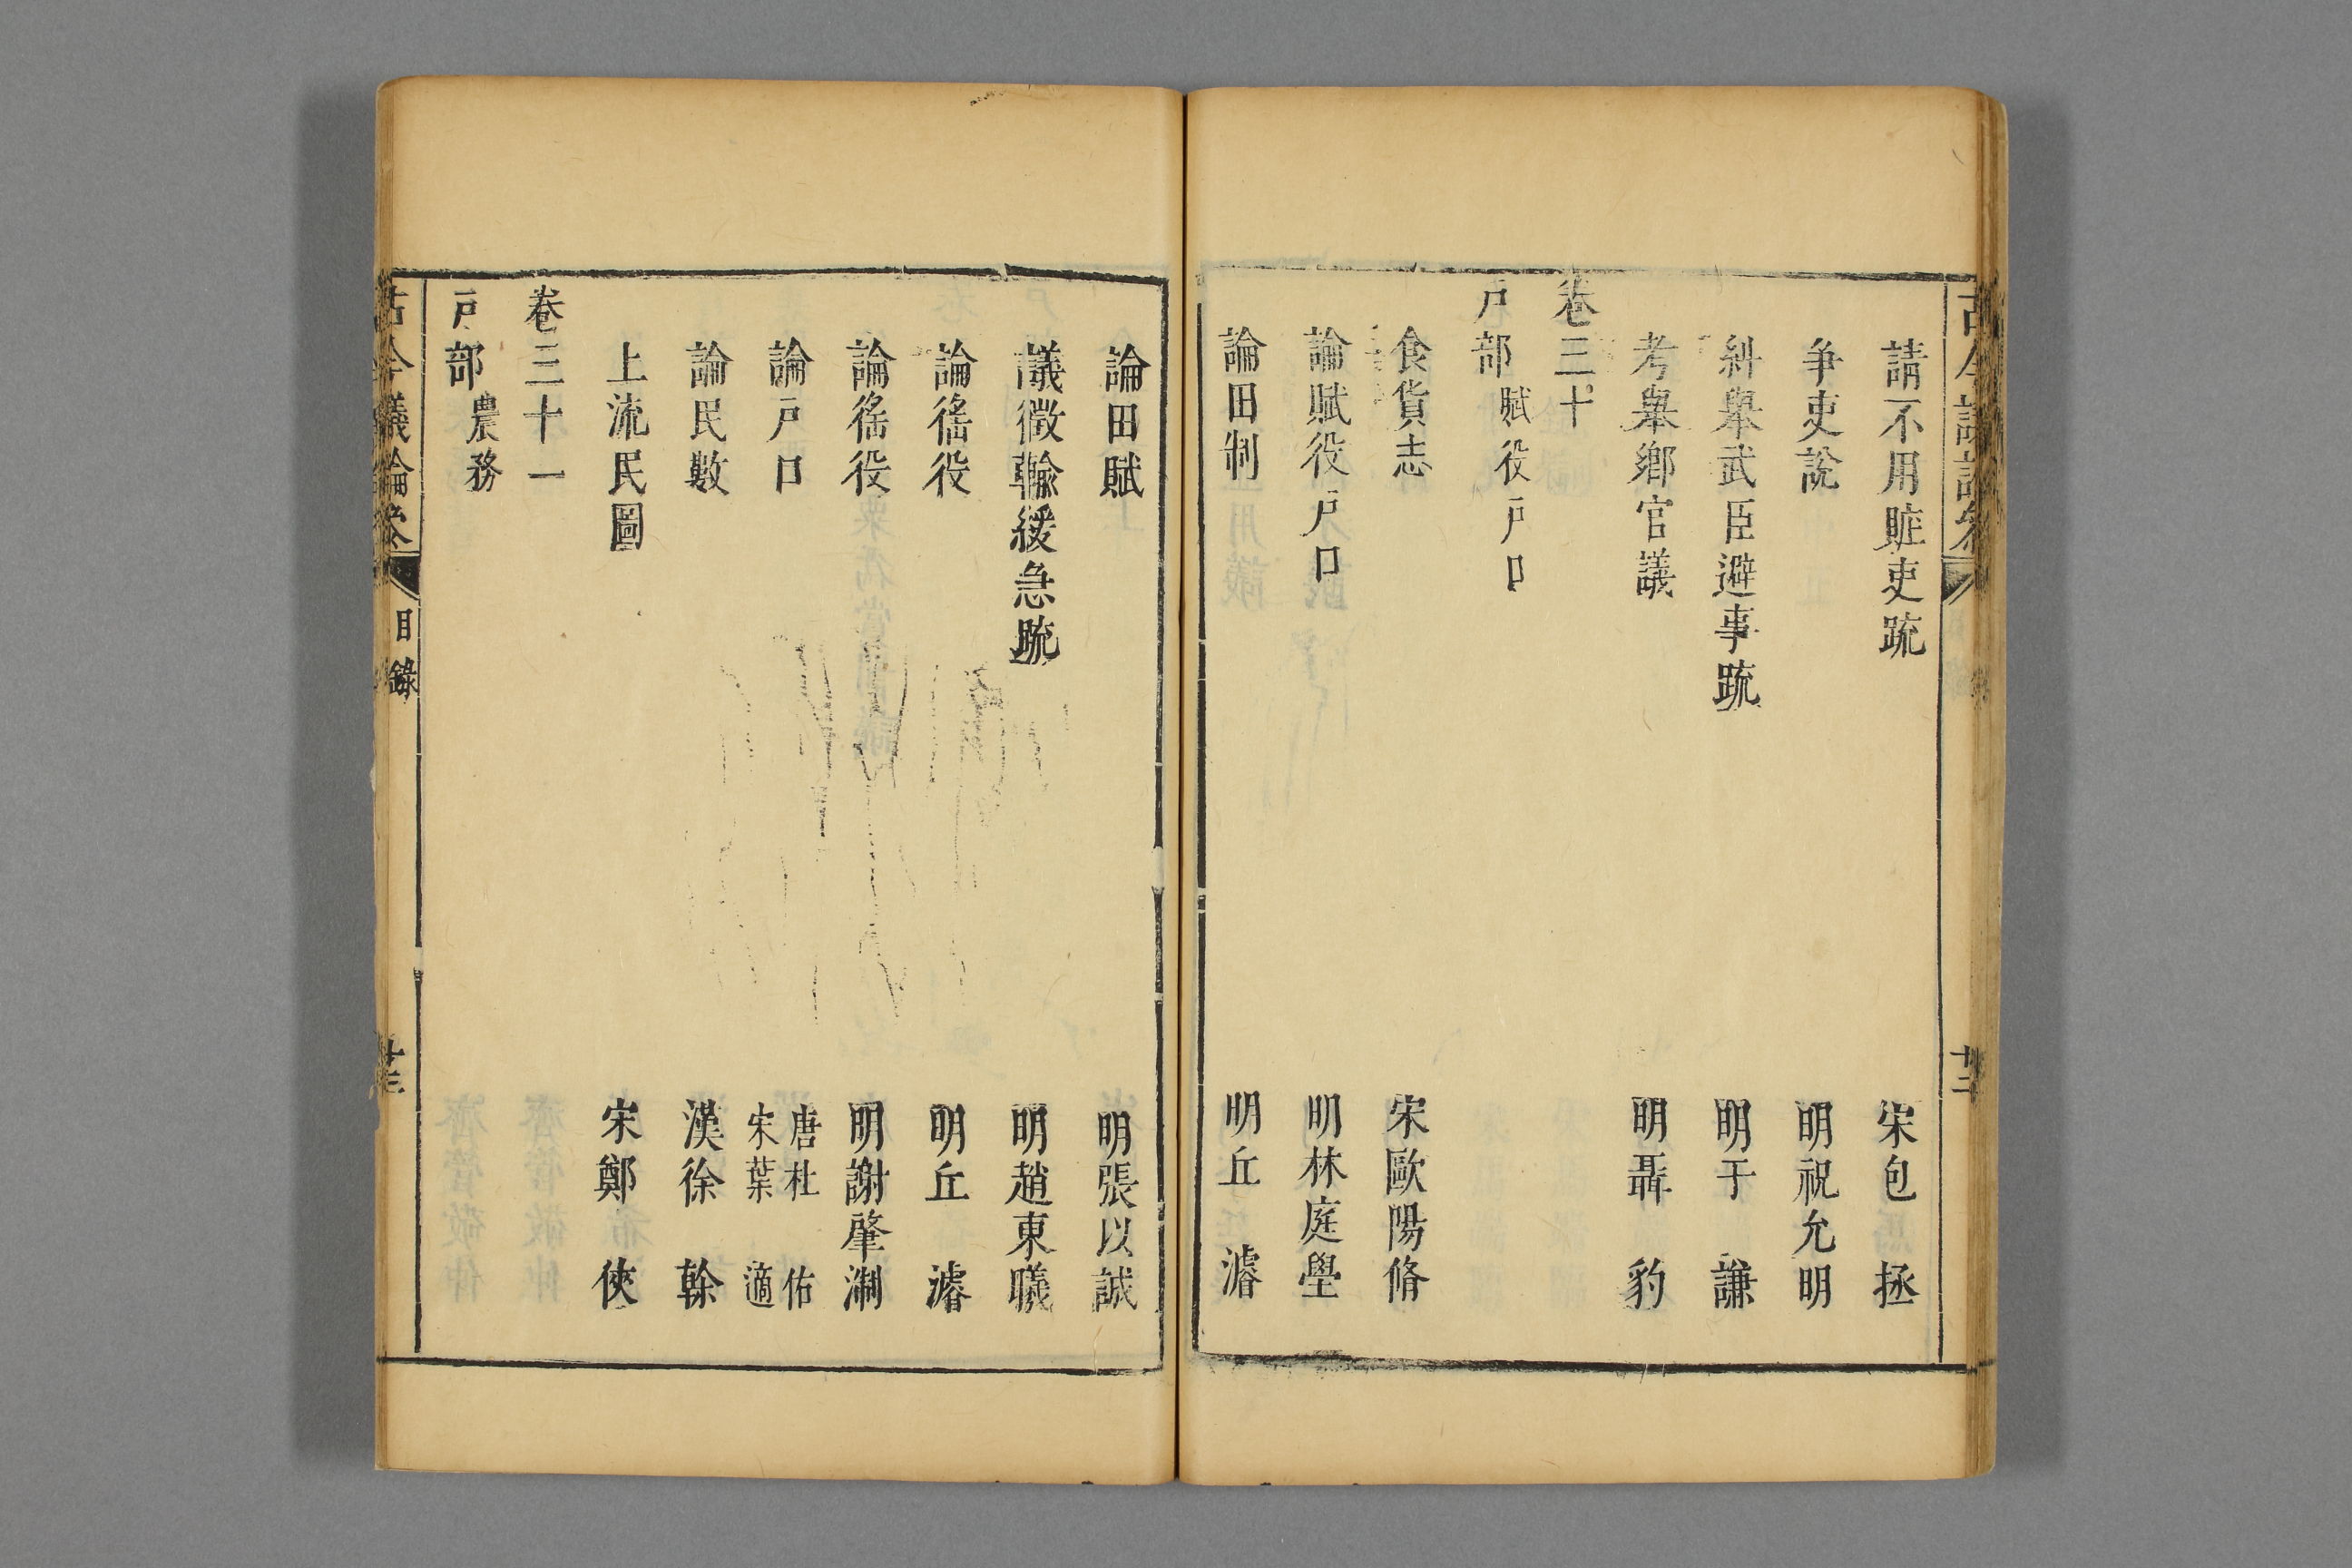 請不用賍吏疏 宋包拯
爭吏說 明祝允明
糾舉武臣避事疏 明于謙
考舉鄉官議 明聶豹
卷三十
戶部 賦役戶口
食貨志 宋歐陽脩
論賦役戶口 明林庭㙾
論田制 明丘濬
論田賦 明張以誠
議徵輸緩急疏 明趙東曦
論徭役 明丘濬
論徭役 明謝肇淛
論戶口 唐杜佑 宋葉適
論民數 漢徐幹
上流民圖 宋鄭俠
卷三十一
戶部 農務
古今議論參
目錄